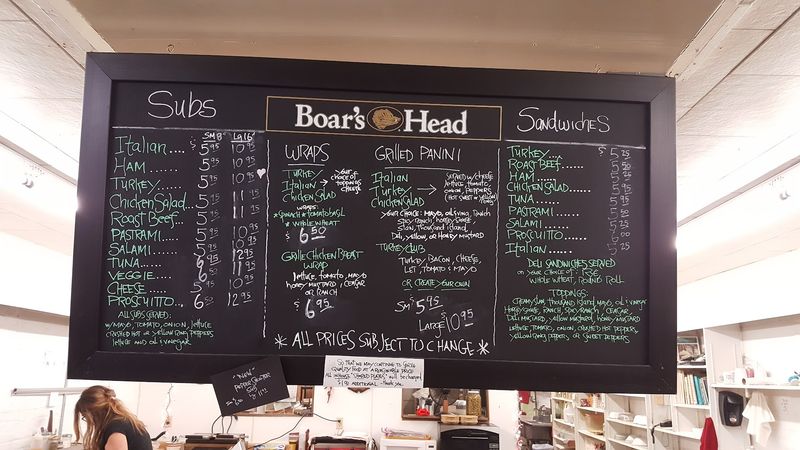 Subs
SM 8" LG 16"
Italian.... $ 5 95 10 95
HAM..... 5 95 10 95
TURKEY.... 5 95 10 95
Chicken Salad... 5 95 11 95
Roast Beef.... 5 95 11 95
PASTRAMI.... 5 95 10 95
SALAMI..... 5 95 10 95
TUNA..... 12 95
VEGGIE... 5 95 11 95
CHEESE.... 5 95 10 95
PROSCIUTTO.. 6 12 95
ALL SUBS SERVED:
W/ MAYO, TOMATO, ONION, LETTUCE
CRUSHED HOT OR YELLOW BANA PEPPERS
LETTUCE AND OIL & VINEGAR
Boar's Head
WRAPS
TURKEY
Italian → your choice of TOPPINGS CHEESE
CHICKEN SALAD
WRAPS:
*SPINACH *TOMATO BASIL
*WHOLE WHEAT
$ 6 50
GRILLE CHICKEN BREAST
WRAP
lettuce, tomato, MAYO
HONEY MUSTARD, CAESAR
OR RANCH
$ 6 95
GRILLED PANINI
Italian
Turkey →
CHICKEN SALAD
SERVED W/ CHEESE
lettuce, tomato,
ONION, PEPPERS
(HOT SWEET OR YELLOW
YOUR CHOICE: MAYO, OIL & VINEG, RANCH
SPICY RANCH, HONEY MUSTARD,
1000 THOUSAND ISLAND,
DELI, YELLOW, OR HONEY MUSTARD
TURKEY CLUB
TURKEY, BACON, CHEESE,
LET, TOMATO & MAYO
OR CREATE YOUR OWN
SM $ 5 95
LARGE $ 10 95
* ALL PRICES SUBJECT TO CHANGE *
SANDWICHES
TURKEY.... $ 5 25
ROAST BEEF..... 5 50
HAM........ 5 25
CHICKEN SALAD..... 5
TUNA........ 5
PASTRAMI...... 5 50
SALAMI....... 5 25
PROSCIUTTO.. 00
Italian...... 5 25
DELI SANDWICHES SERVED
ON YOUR CHOICE OF: RYE
WHOLE WHEAT, ROUND ROLL
TOPPINGS:
CREAMY SLAW, THOUSAND ISLAND, MAYO, OIL & VINEGAR
HONEY MUSTARD, RANCH, SPICY RANCH, CAESAR
DELI MUSTARD, YELLOW MUSTARD, HONEY MUSTARD
LETTUCE, TOMATO, ONION, CRUSHED HOT PEPPERS,
YELLOW BANA PEPPER, OR SWEET PEPPERS
"NEW"
PEPPER
SUB
SO THAT WE MAY CONTINUE TO SERVE
QUALITY FOOD AT A REASONABLE PRICE
ALL IN HOUSE "SHARED PLATES" WILL BE CHARGED
$1.50 ADDITIONAL - THANK YOU